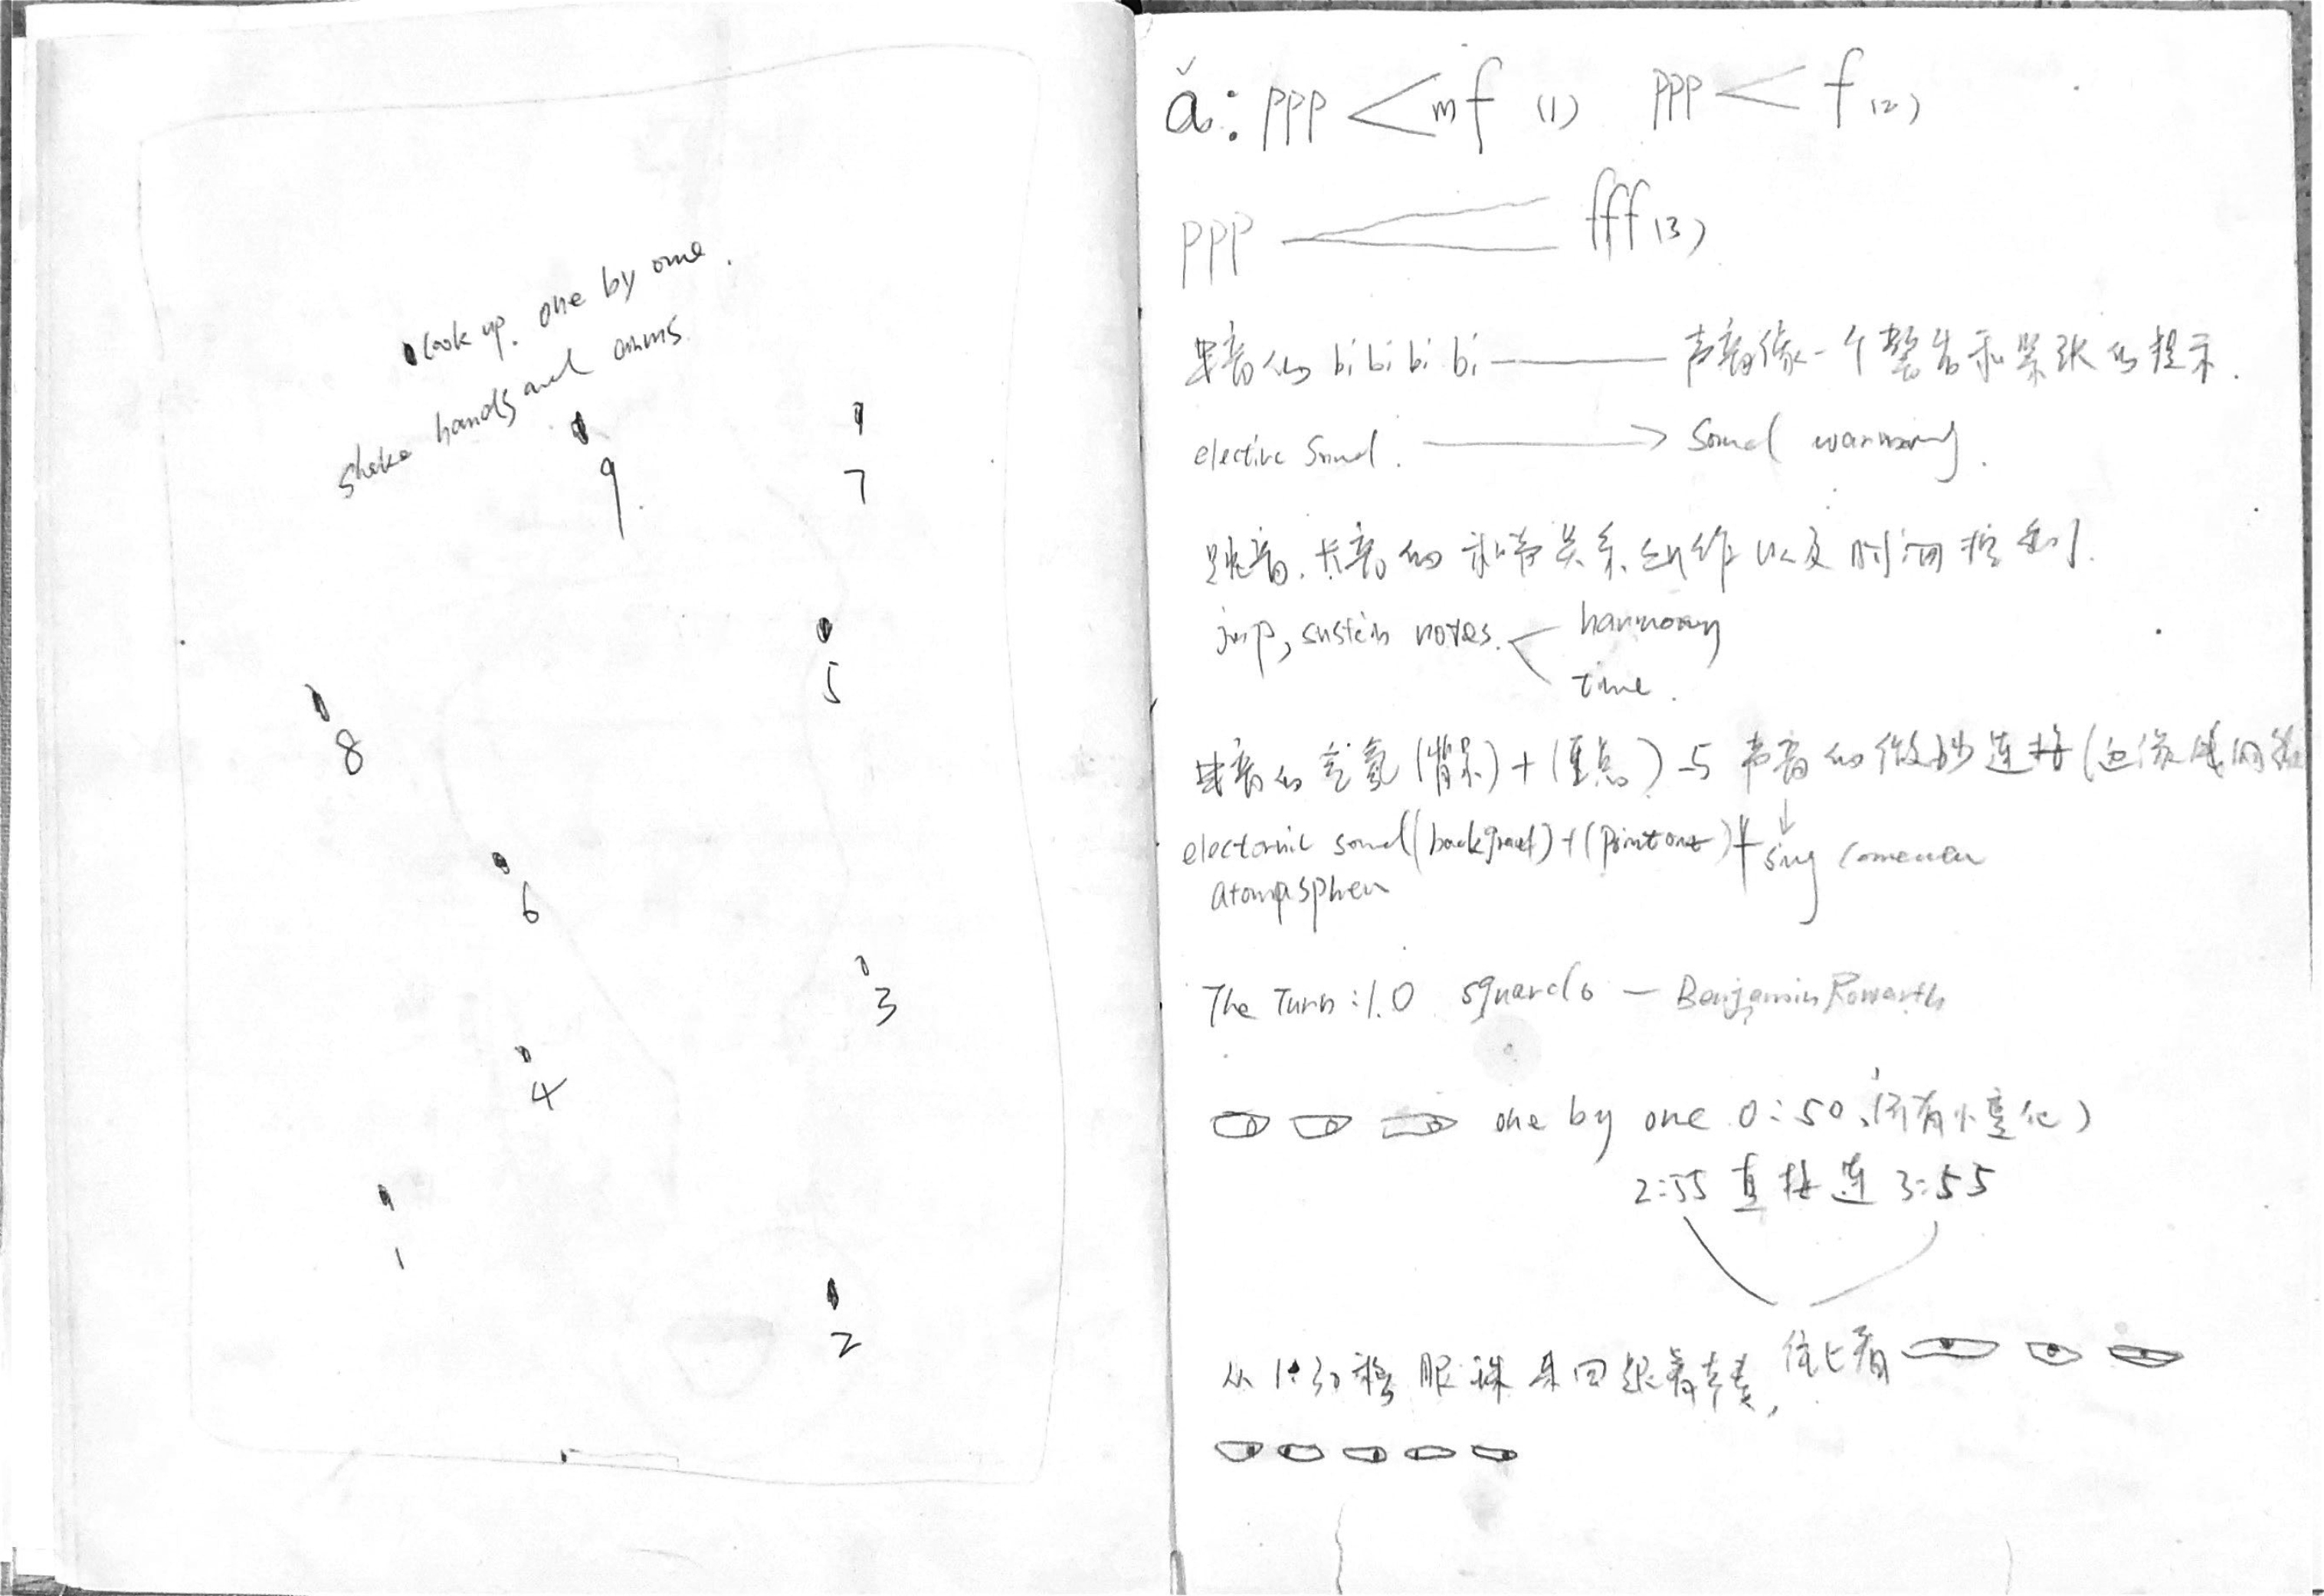 look up. one by one.
shake hands and arms
9
7
5
8
6
3
4
1
2
ǎ: ppp < mf (1) ppp < f (2)
ppp < fff (3)
电音的 bi bi bi bi — 声音像一个警告和紧张的提示.
electric sound. → sound warning.
跳音.长音的和声关系 以及时间控制.
jump, sustain notes. < harmony
time.
电音的氛 (背景) + (重点) 与声音的微妙连接 (
sound ( ) + (point out) +
The Turn: 1.0 squardo — Benjamin Rowarth
one by one 0:50. (所有小变化)
2:55 直接连 3:55
从 1:30 移眼珠来回跟着节奏, 往上看